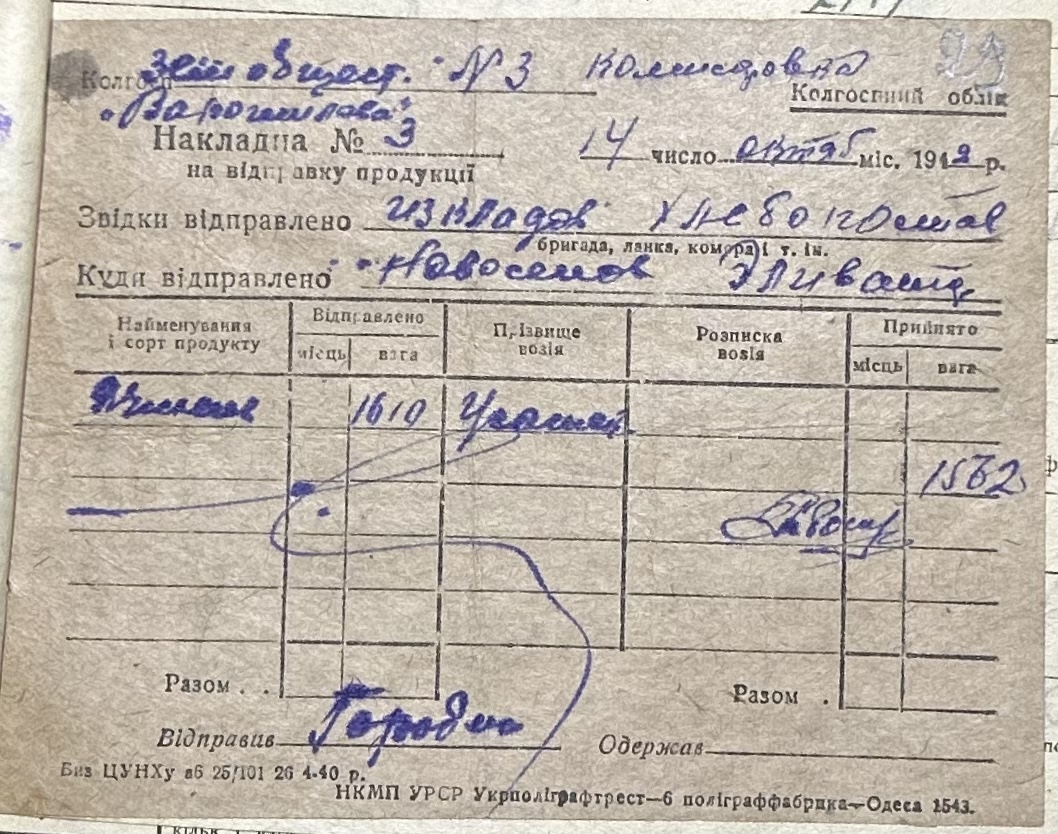 29
Колгосп Зем общест. N 3 Комисаровка
"Варошилова"
Колгоспний облік
Накладна № 3
на відправку продукції
14 число октяб міс. 1942 р.
Звідки відправлено из кладов
бригада, ланка, комора і т. ін.
Куди відправлено Новоселов
Найменування і сорт продукту
Відправлено
місць
вага
Прізвище возія
Розписка возія
Прийнято
місць
вага
1610
1562
Разом . .
Разом .
Відправив
Одержав
Биз ЦУНХу в6 25/101 26 4-40 р.
НКМП УРСР Укрполіграфтрест—6 поліграффабрика—Одеса 1543.